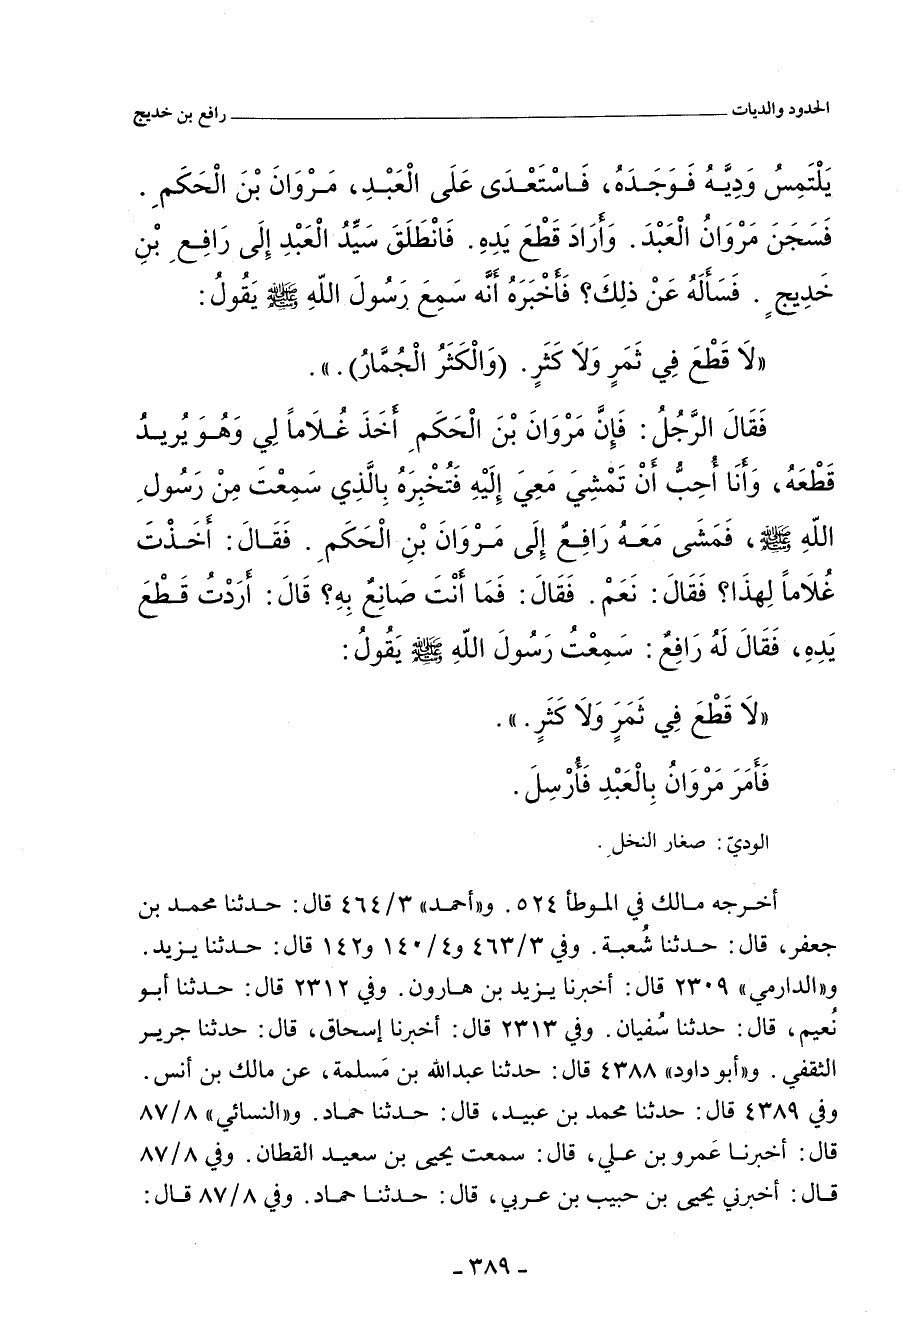 الحدود والديات ـــــــــــ رافع بن خديج
يَلْتَمِسُ وَدِيَّهُ فَوَجَدَهُ، فَاسْتَعْدَى عَلَى الْعَبْدِ، مَرْوَانَ بْنَ الْحَكَمِ.
فَسَجَنَ مَرْوَانُ الْعَبْدَ. وَأَرَادَ قَطْعَ يَدِهِ. فَانْطَلَقَ سَيِّدُ الْعَبْدِ إِلَى رَافِعِ بْنِ
خَدِيجٍ. فَسَأَلَهُ عَنْ ذلِكَ؟ فَأَخْبَرَهُ أَنَّه سَمِعَ رَسُولَ اللّهِ ﷺ يَقُولُ:
«لَا قَطْعَ فِي ثَمَرٍ وَلَا كَثَرٍ. (وَالْكَثَرُ الْجُمَّارُ).».
فَقَالَ الرَّجُلُ: فَإِنَّ مَرْوَانَ بْنَ الْحَكَمِ أَخَذَ غُلَاماً لِي وَهُوَ يُرِيدُ
قَطْعَهُ، وَأَنَا أُحِبُّ أَنْ تَمْشِيَ مَعِيَ إِلَيْهِ فَتُخْبِرَهُ بِالَّذِي سَمِعْتَ مِنْ رَسُولِ
اللّهِ ﷺ، فَمَشَى مَعَهُ رَافِعٌ إِلَى مَرْوَانَ بْنِ الْحَكَمِ. فَقَالَ: أَخَذْتَ
غُلَاماً لِهذَا؟ فَقَالَ: نَعَمْ. فَقَالَ: فَمَا أَنْتَ صَانِعٌ بِهِ؟ قَالَ: أَرَدْتُ قَطْعَ
يَدِهِ، فَقَالَ لَهُ رَافِعٌ: سَمِعْتُ رَسُولَ اللّهِ ﷺ يَقُولُ:
«لَا قَطْعَ فِي ثَمَرٍ وَلَا كَثَرٍ.».
فَأَمَرَ مَرْوَانُ بِالْعَبْدِ فَأُرْسِلَ.
الوديّ: صغار النخلِ.
أخرجه مالك في الموطأ ٥٢٤. و«أحمد» ٤٦٤/٣ قال: حدثنا محمد بن
جعفر، قال: حدثنا شُعبة. وفي ٤٦٣/٣ و١٤٠/٤ و١٤٢ قال: حدثنا يزيد.
و«الدارمي» ٢٣٠٩ قال: أخبرنا يزيد بن هارون. وفي ٢٣١٢ قال: حدثنا أبو
نُعيم، قال: حدثنا سُفيان. وفي ٢٣١٣ قال: أخبرنا إسحاق، قال: حدثنا جرير
الثقفي. و«أبو داود» ٤٣٨٨ قال: حدثنا عبدالله بن مَسلمة، عن مالك بن أنس.
وفي ٤٣٨٩ قال: حدثنا محمد بن عبيد، قال: حدثنا حماد. و«النسائي» ٨٧/٨
قال: أخبرنا عَمرو بن علي، قال: سمعت يحيى بن سعيد القطان. وفي ٨٧/٨
قال: أخبرني يحيى بن حبيب بن عربي، قال: حدثنا حماد. وفي ٨٧/٨ قال:
- ٣٨٩ -